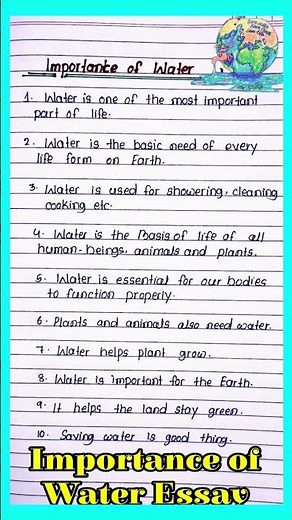 Importance of Water
1. Water is one of the most important
part of life.
2. Water is the basic need of every
life form on Earth.
3. Water is used for showering, cleaning
cooking etc.
4. Water is the Basis of life of all
human-beings, animals and plants.
5. Water is essential for our bodies
to function properly.
6. Plants and animals also need water.
7. Water helps plant grow.
8. Water is important for the Earth.
9. It helps the land stay green.
10. Saving water is good thing.
Importance of
Water Essay